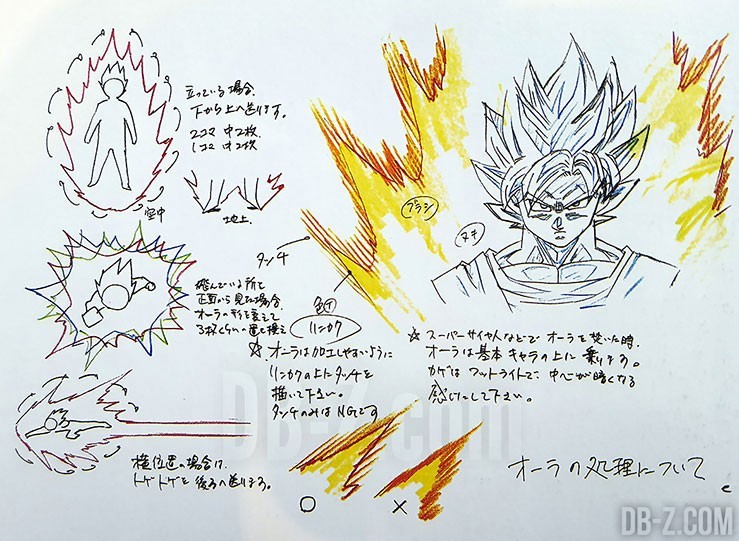 立っている場合.
下から上へ送ります。
2コマ 中2枚
1コマ 中2枚
空中
地上.
タッチ
ブラシ
ヌキ
飛んでいる所を
正面から見た場合.
オーラの形を変えて
3枚くらい置き換え
リンカク
☆ オーラは加工しやすいように
リンカクの上にタッチを
描いて下さい。
タッチのみはNGです
☆ スーパーサイヤ人などで オーラを焚いた時.
オーラは基本 キャラの上に 乗ります。
カゲはフットライトで、中心が暗くなる
感じにして下さい。
横位置の場合は.
トゲトゲを後ろへ送ります。
○ ×
オーラの処理について
DB-Z.com
DB-Z.COM